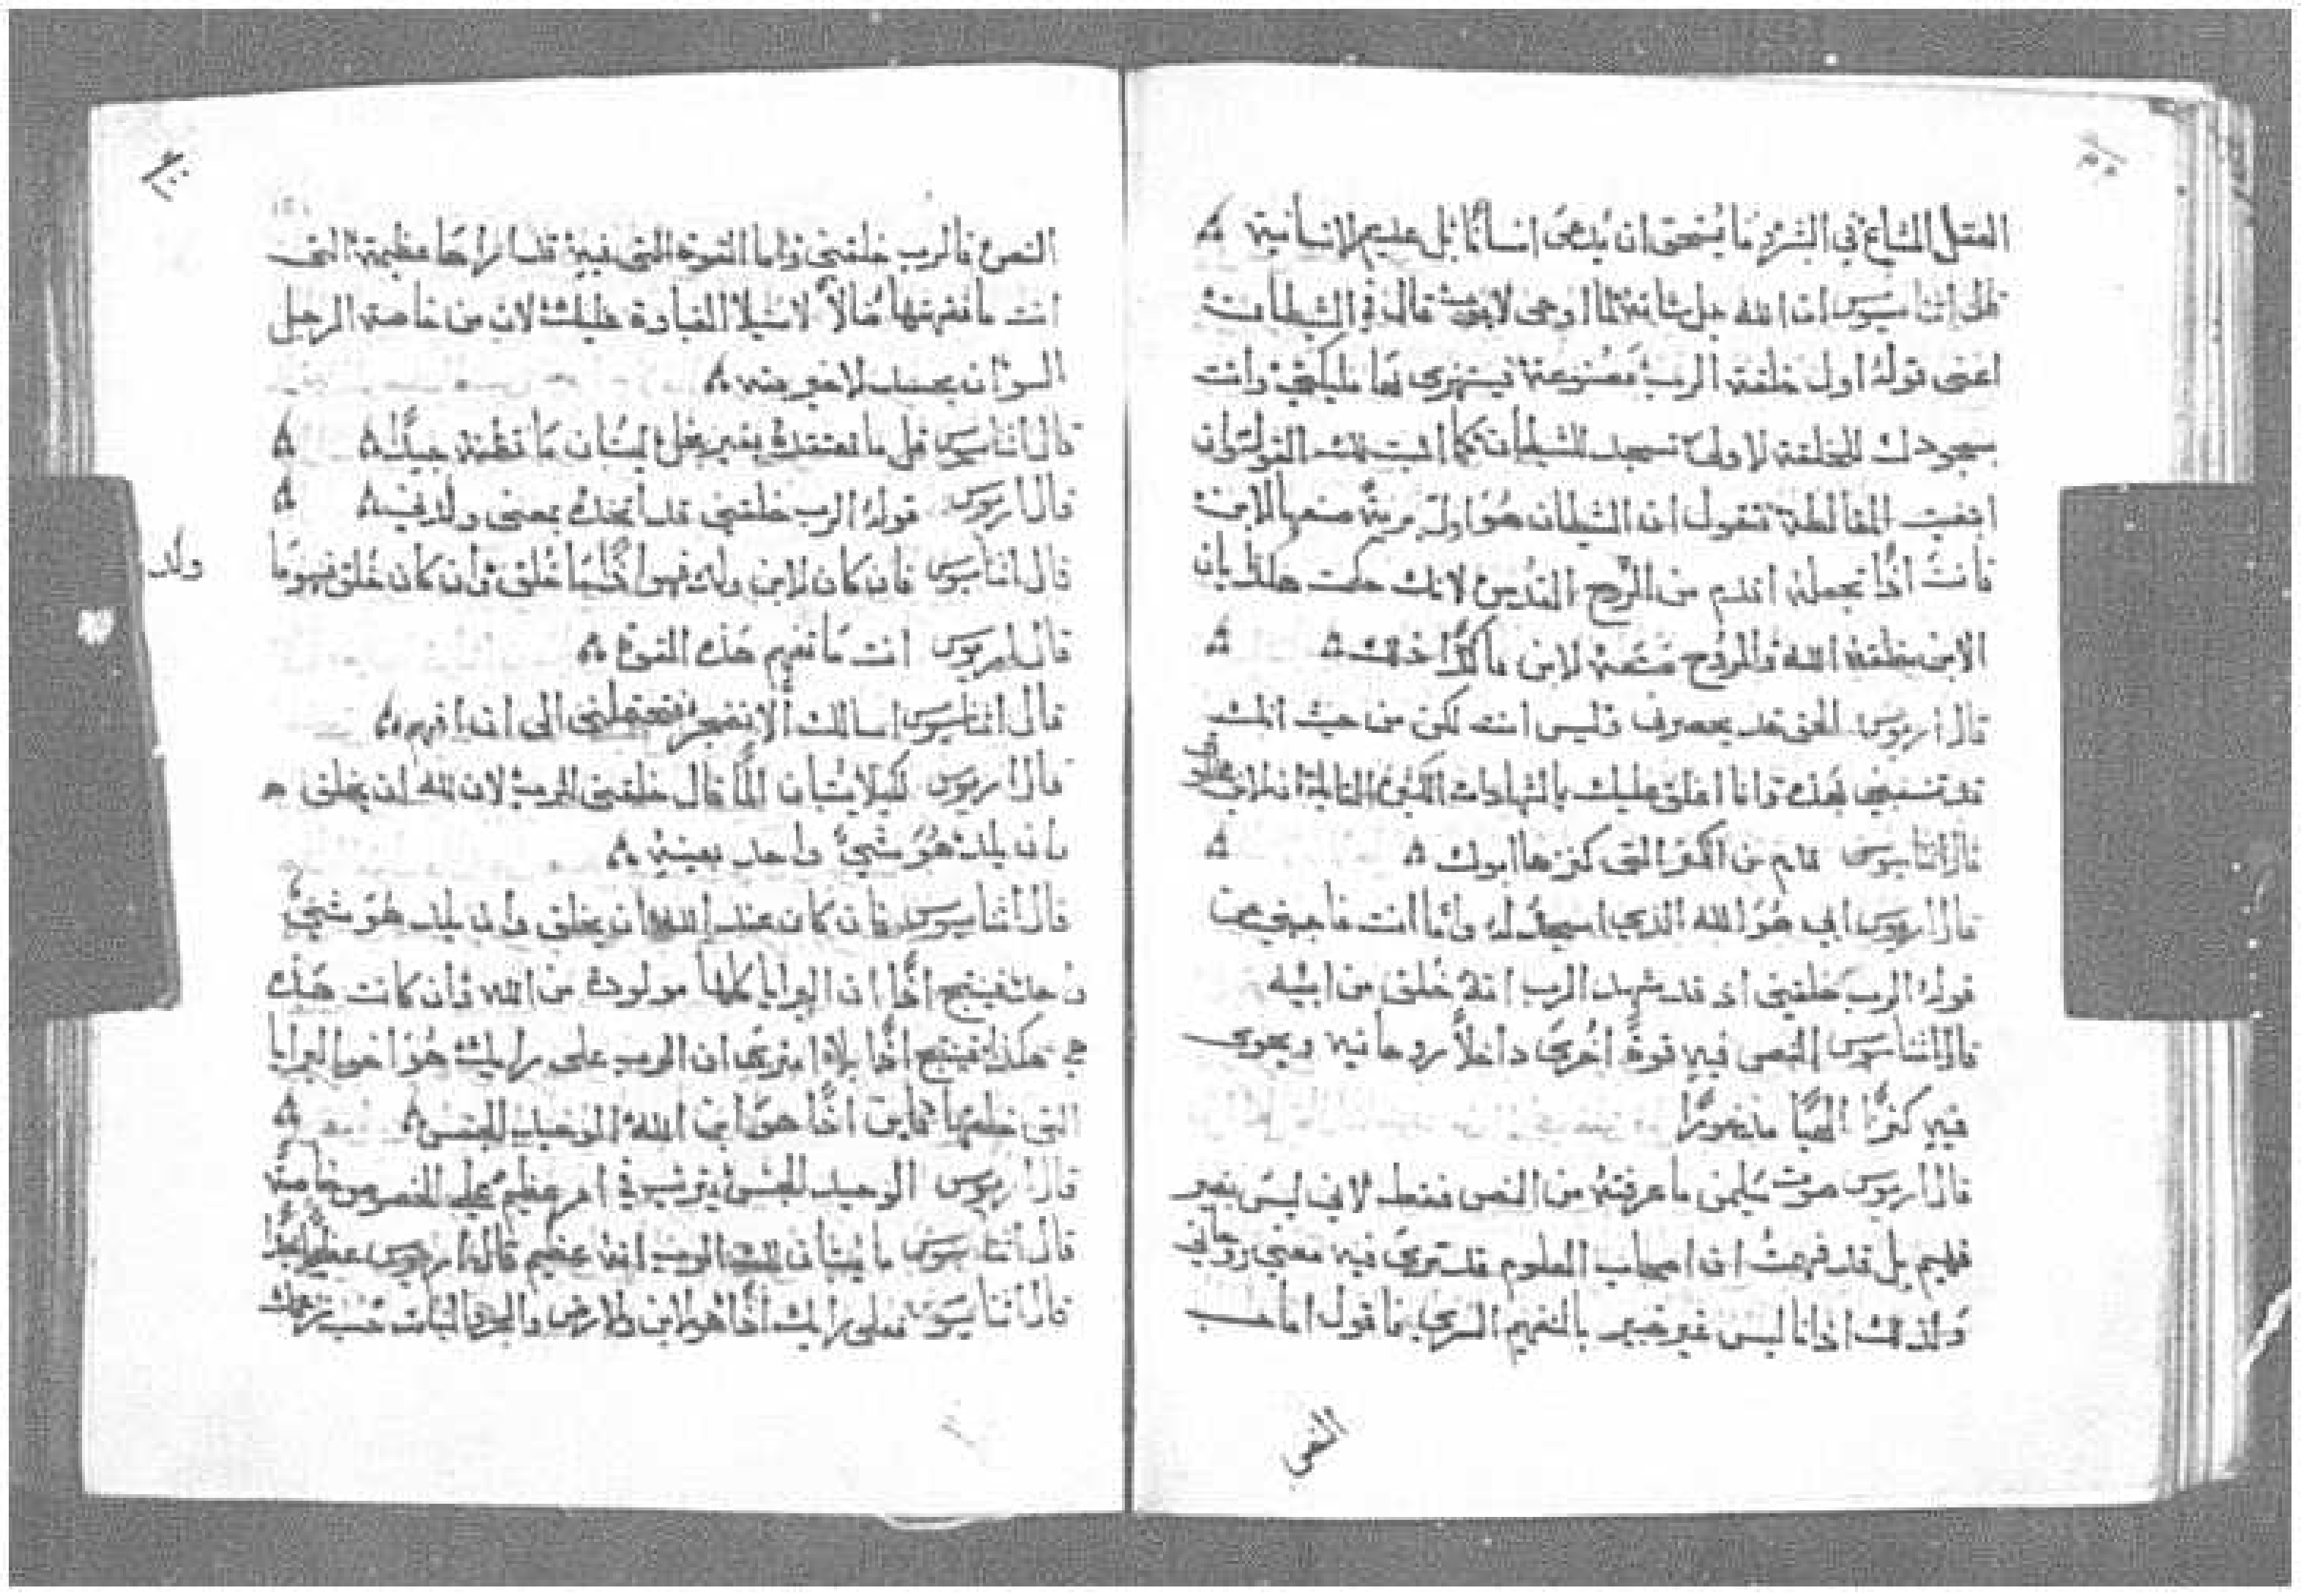 العقل الشاع في البشر ما يستحق ان يدعى انسانًا بل عديم الانسانية
قال اثناسيوس ان الله جل شانه لما اوحى لايوب قال في الشيطان
اعنى قوله اول خلقة الرب مصنوعة ليستهزى بها ملايكته وانت
بسجودك للخلقة الاولى تسجد للشيطان كما اثبت لك القول وان
ابتغيت المغالطة فتقول ان الشيطان هو اول برية صنعها الابن
فانت اذًا تجعله اقدم من الروح القدس لانك حكمت هكذا بان
الابن خلقة الله والروح صنعة الابن ما كذا ذلك
قال اريوس الحق قد يحصرني وليس انت لكن من حيث انك
قد تضنيني بهذه وانا اغلق عليك بالشهادات الكثيرة القايلة ان الابن مخلوق
قال اثناسيوس هلم من الكفر التى كنزها ابوك
قال اريوس ابي هو الله الذي اسجد له واما انت فاجبني عن
قوله الرب خلقني اذ قد شهد الرب انه خلق من ابيه
قال اثناسيوس النص فيه قوة اخرى داخلاً روحانيه ويحوى
فيه كنزًا الهيًا مذخورًا
قال اريوس صوت سليمن ما عرفته من النص فقط لاني ليس بغير
فهيم بل قد فهمت ان اصحاب العلوم قد ترى فيه معنى روحاني
ولذلك اذ انا ليس غير خبير بالتفهيم السري فاقول اما حسب
النص
النص فالرب خلقني واما القوة التى فيه قد اراها عظيمة التى
انت ما فهمتها قالاً لا شيلا الغباوة عليك لان من خاصة الرجل
السؤان بحسد لا غير منه
قال اثناسيوس قل ما تعتقده بغير بخل ليبان ما تظنه جيدًا
قال اريوس قوله الرب خلقني قد اتخذه بمعنى ولد فيه
قال اثناسيوس فان كان الابن ولد فهو اذًا ما خلق وان كان خلق فهو ما
ولد
قال اريوس انت ما تفهم هذه النوع
قال اثناسيوس اسالك ألا تضجر فتحتملني الى ان افهم
قال اريوس لكيلا يبان الما قال خلقني الرب لان لله ان يخلق
بان يلد هو شيئ واحد بعينه
قال اثناسيوس فان كان عند الله ان يخلق وان يلد هو شيئ
واحد فينتج اذًا ان البرايا كلها مولودة من الله وان كانت هذه
هي هكذا فينتج اذًا بلا امترى ان الرب على رايك هو اخو البرايا
التى خلقها فاين اذًا هو ابن الله الوحيد الجنس
قال اريوس الوحيد الجنس يترتب في امر عظيم على الخصوص خاصة
قال اثناسيوس ما يبان لك الرب انه عظيم قال اريوس عظيم جدًا
قال اثناسيوس فعلى رايك اذًا هو ابن والارض والبحر والنبات حسب زعمك